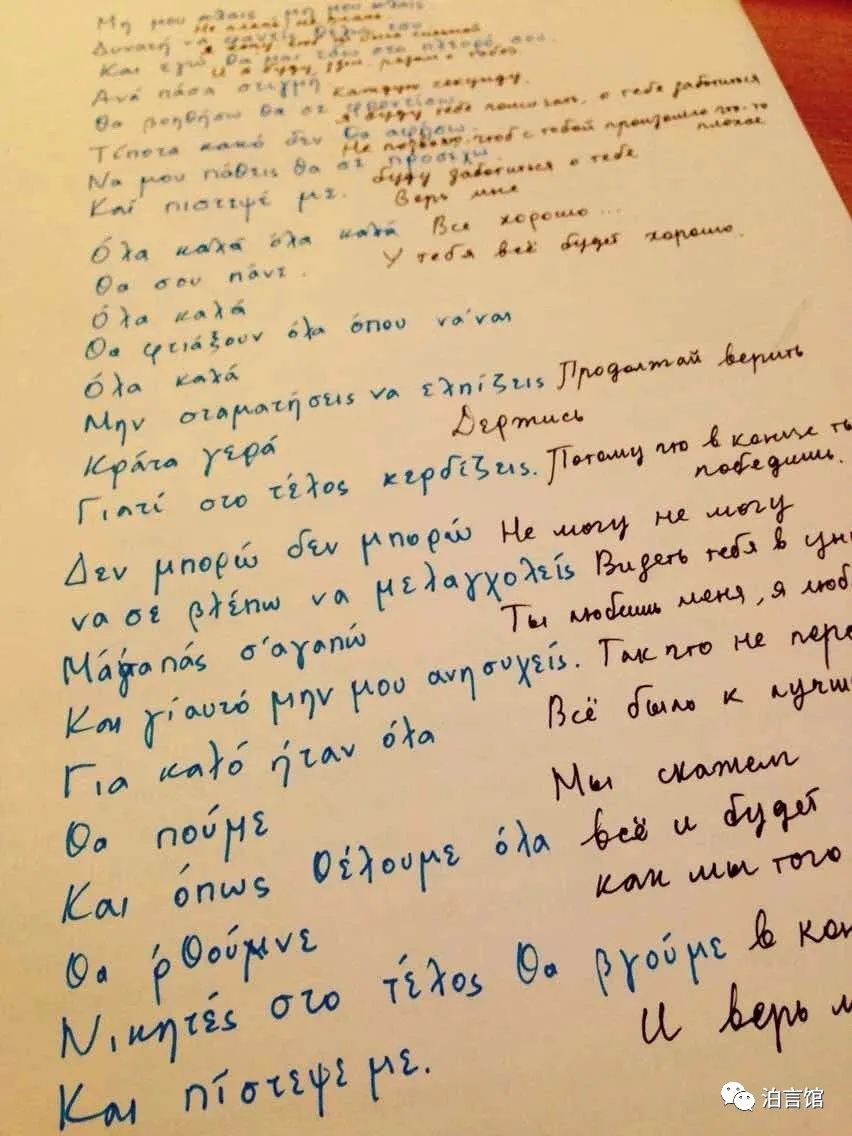 Μη μου κλαις μη μου κλαις
Не плачь, не плачь
Δυνατή να φανείς θέλω
Я хочу
сильной
Και εγώ θα μαι εδώ στο πλευρό σου.
И я буду здесь рядом с тобой
Ανά πάσα στιγμή каждую секунду.
Θα βοηθήσω θα σε φροντίσω
Я буду тебе помогать, о тебе заботиться
Τίποτα κακό δεν θα αφήσω.
Не позволю, чтоб с тобой произошло что-то плохое
Να μου πάθεις θα σε προσέχω
буду заботиться о тебе
Και πιστεψέ με. Верь мне
Όλα καλά όλα καλά Всё хорошо...
Θα σου πάνε. У тебя всё будет хорошо.
Όλα καλά
Θα φτιάξουν όλα όπου να'ναι
Όλα καλά
Μην σταματήσεις να ελπίζεις Продолжай верить
Κράτα γερά Держись
Γιατί στο τέλος κερδίζεις. Потому что в конце ты
победишь.
Δεν μπορώ δεν μπορώ Не могу не могу
να σε βλέπω να μελαγχολείς Видеть тебя в
σ'αγαπώ Ты любишь меня, я
Και γι'αυτό μην μου ανησυχείς. Так что не
Για καλό ήταν όλα Всё было к
Θα πούμε Мы скажем
Και όπως θέλουμε όλα всё и будет
Θα 'ρθούμνε как мы того
Νικητές στο τέλος θα βγούμε в
Και πίστεψε με. И верь
泊言馆